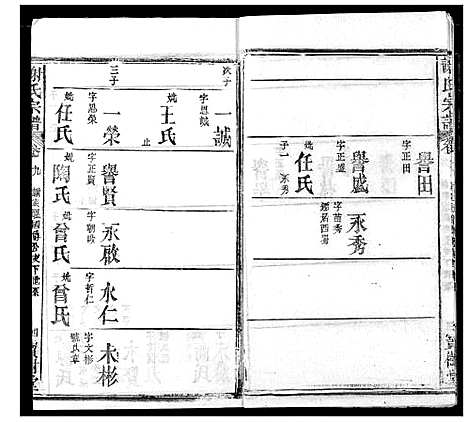 謝氏宗譜
譽田
字正田
譽盛
字正盛
姚任氏
子一 永秀
永秀
字苗秀
寶樹堂
次子
一誠
字思誠
姚王氏
止
三子
一榮
字思榮
姚任氏
譽賢
字正賢
姚陶氏
永啟
字朝啟
姚曾氏
永仁
字哲仁
姚曾氏
未彬
字文彬
謝氏宗譜
卷九
四
寶樹堂